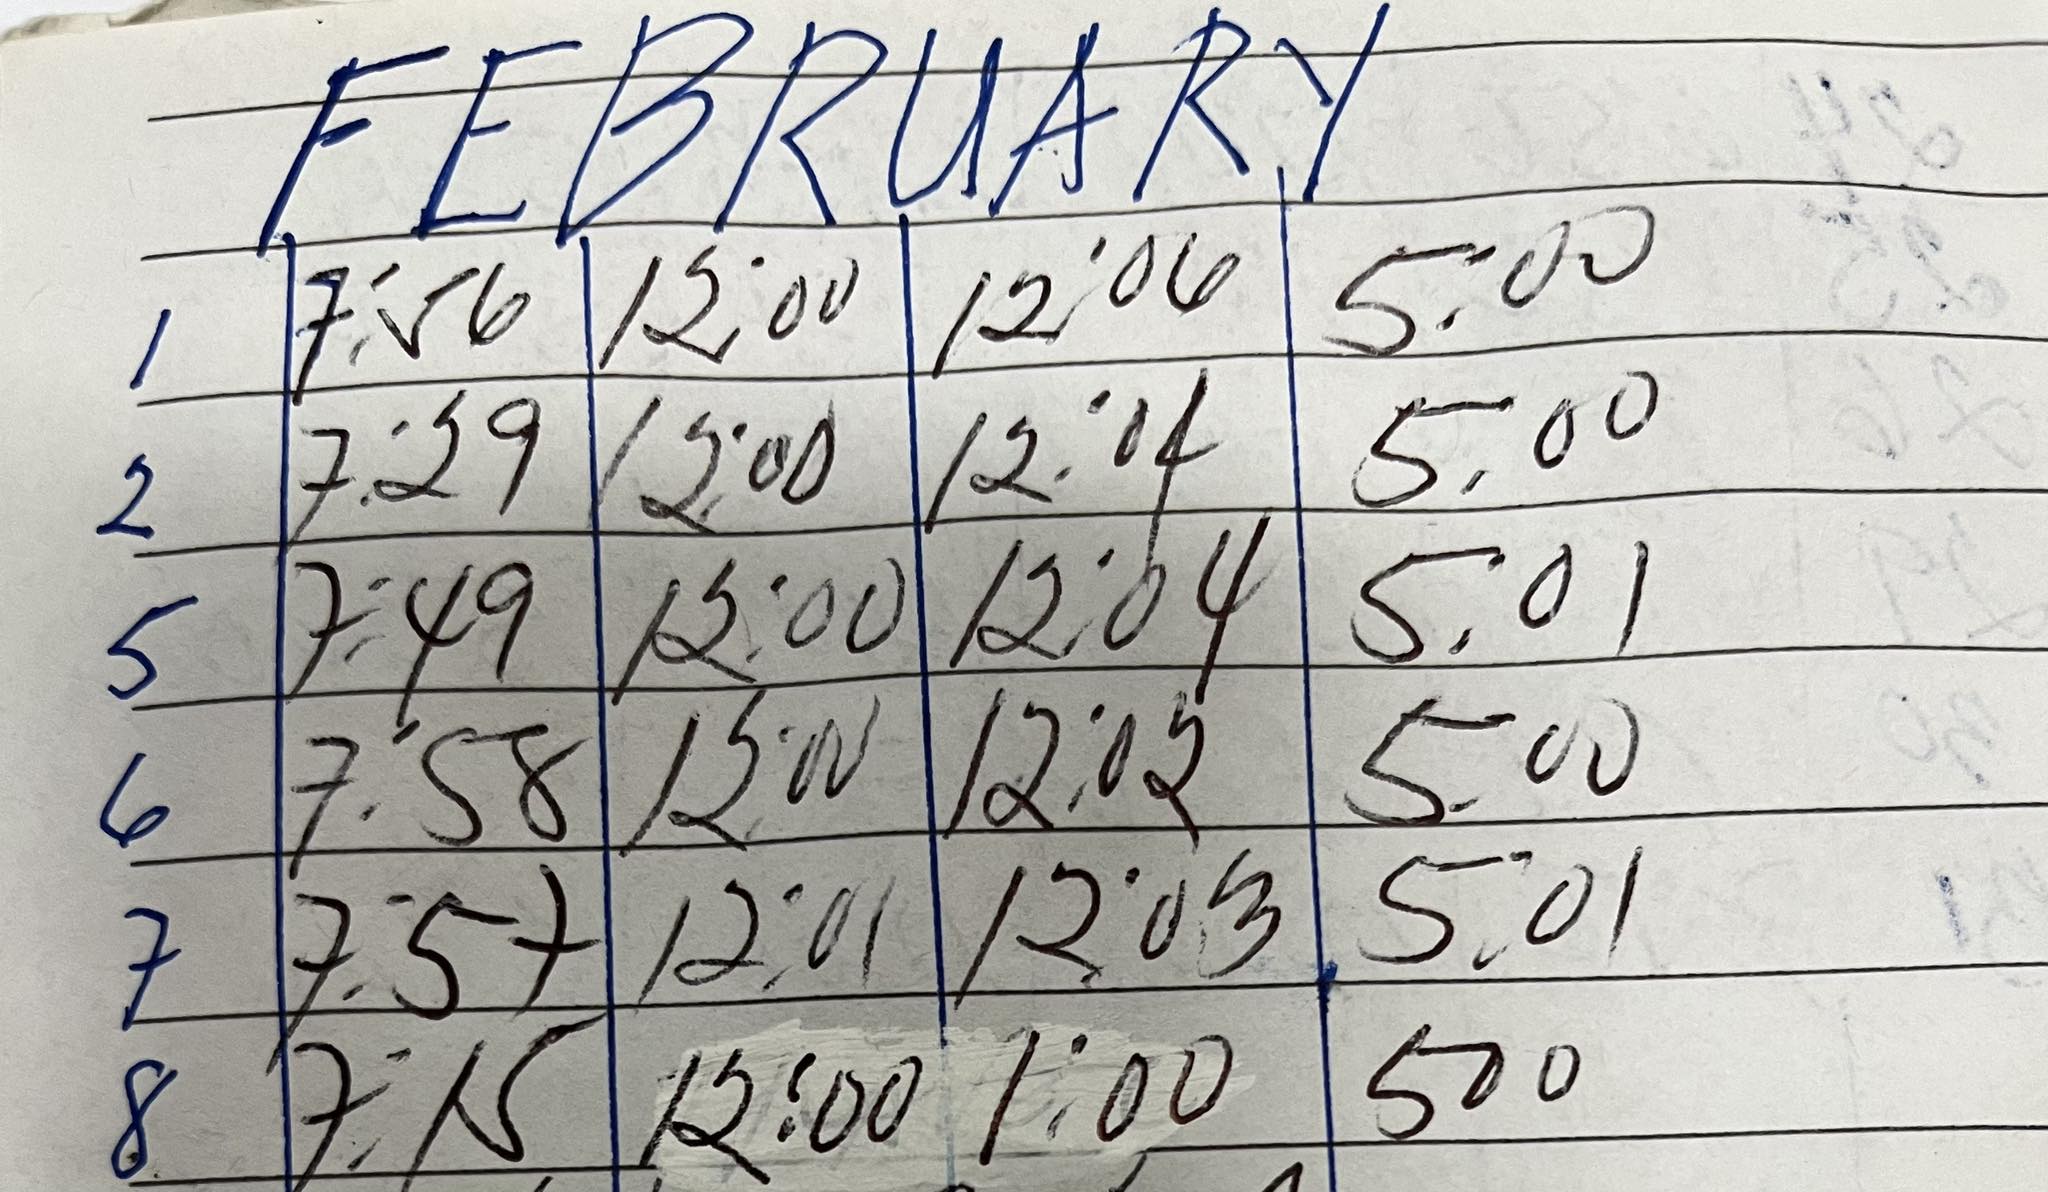 FEBRUARY
1 7:56 12:00 12:06 5:00
2 7:29 12:00 12:04 5:00
5 7:49 12:00 12:04 5:01
6 7:58 12:00 12:02 5:00
7 7:57 12:01 12:03 5:01
8 7:15 12:00 1:00 500